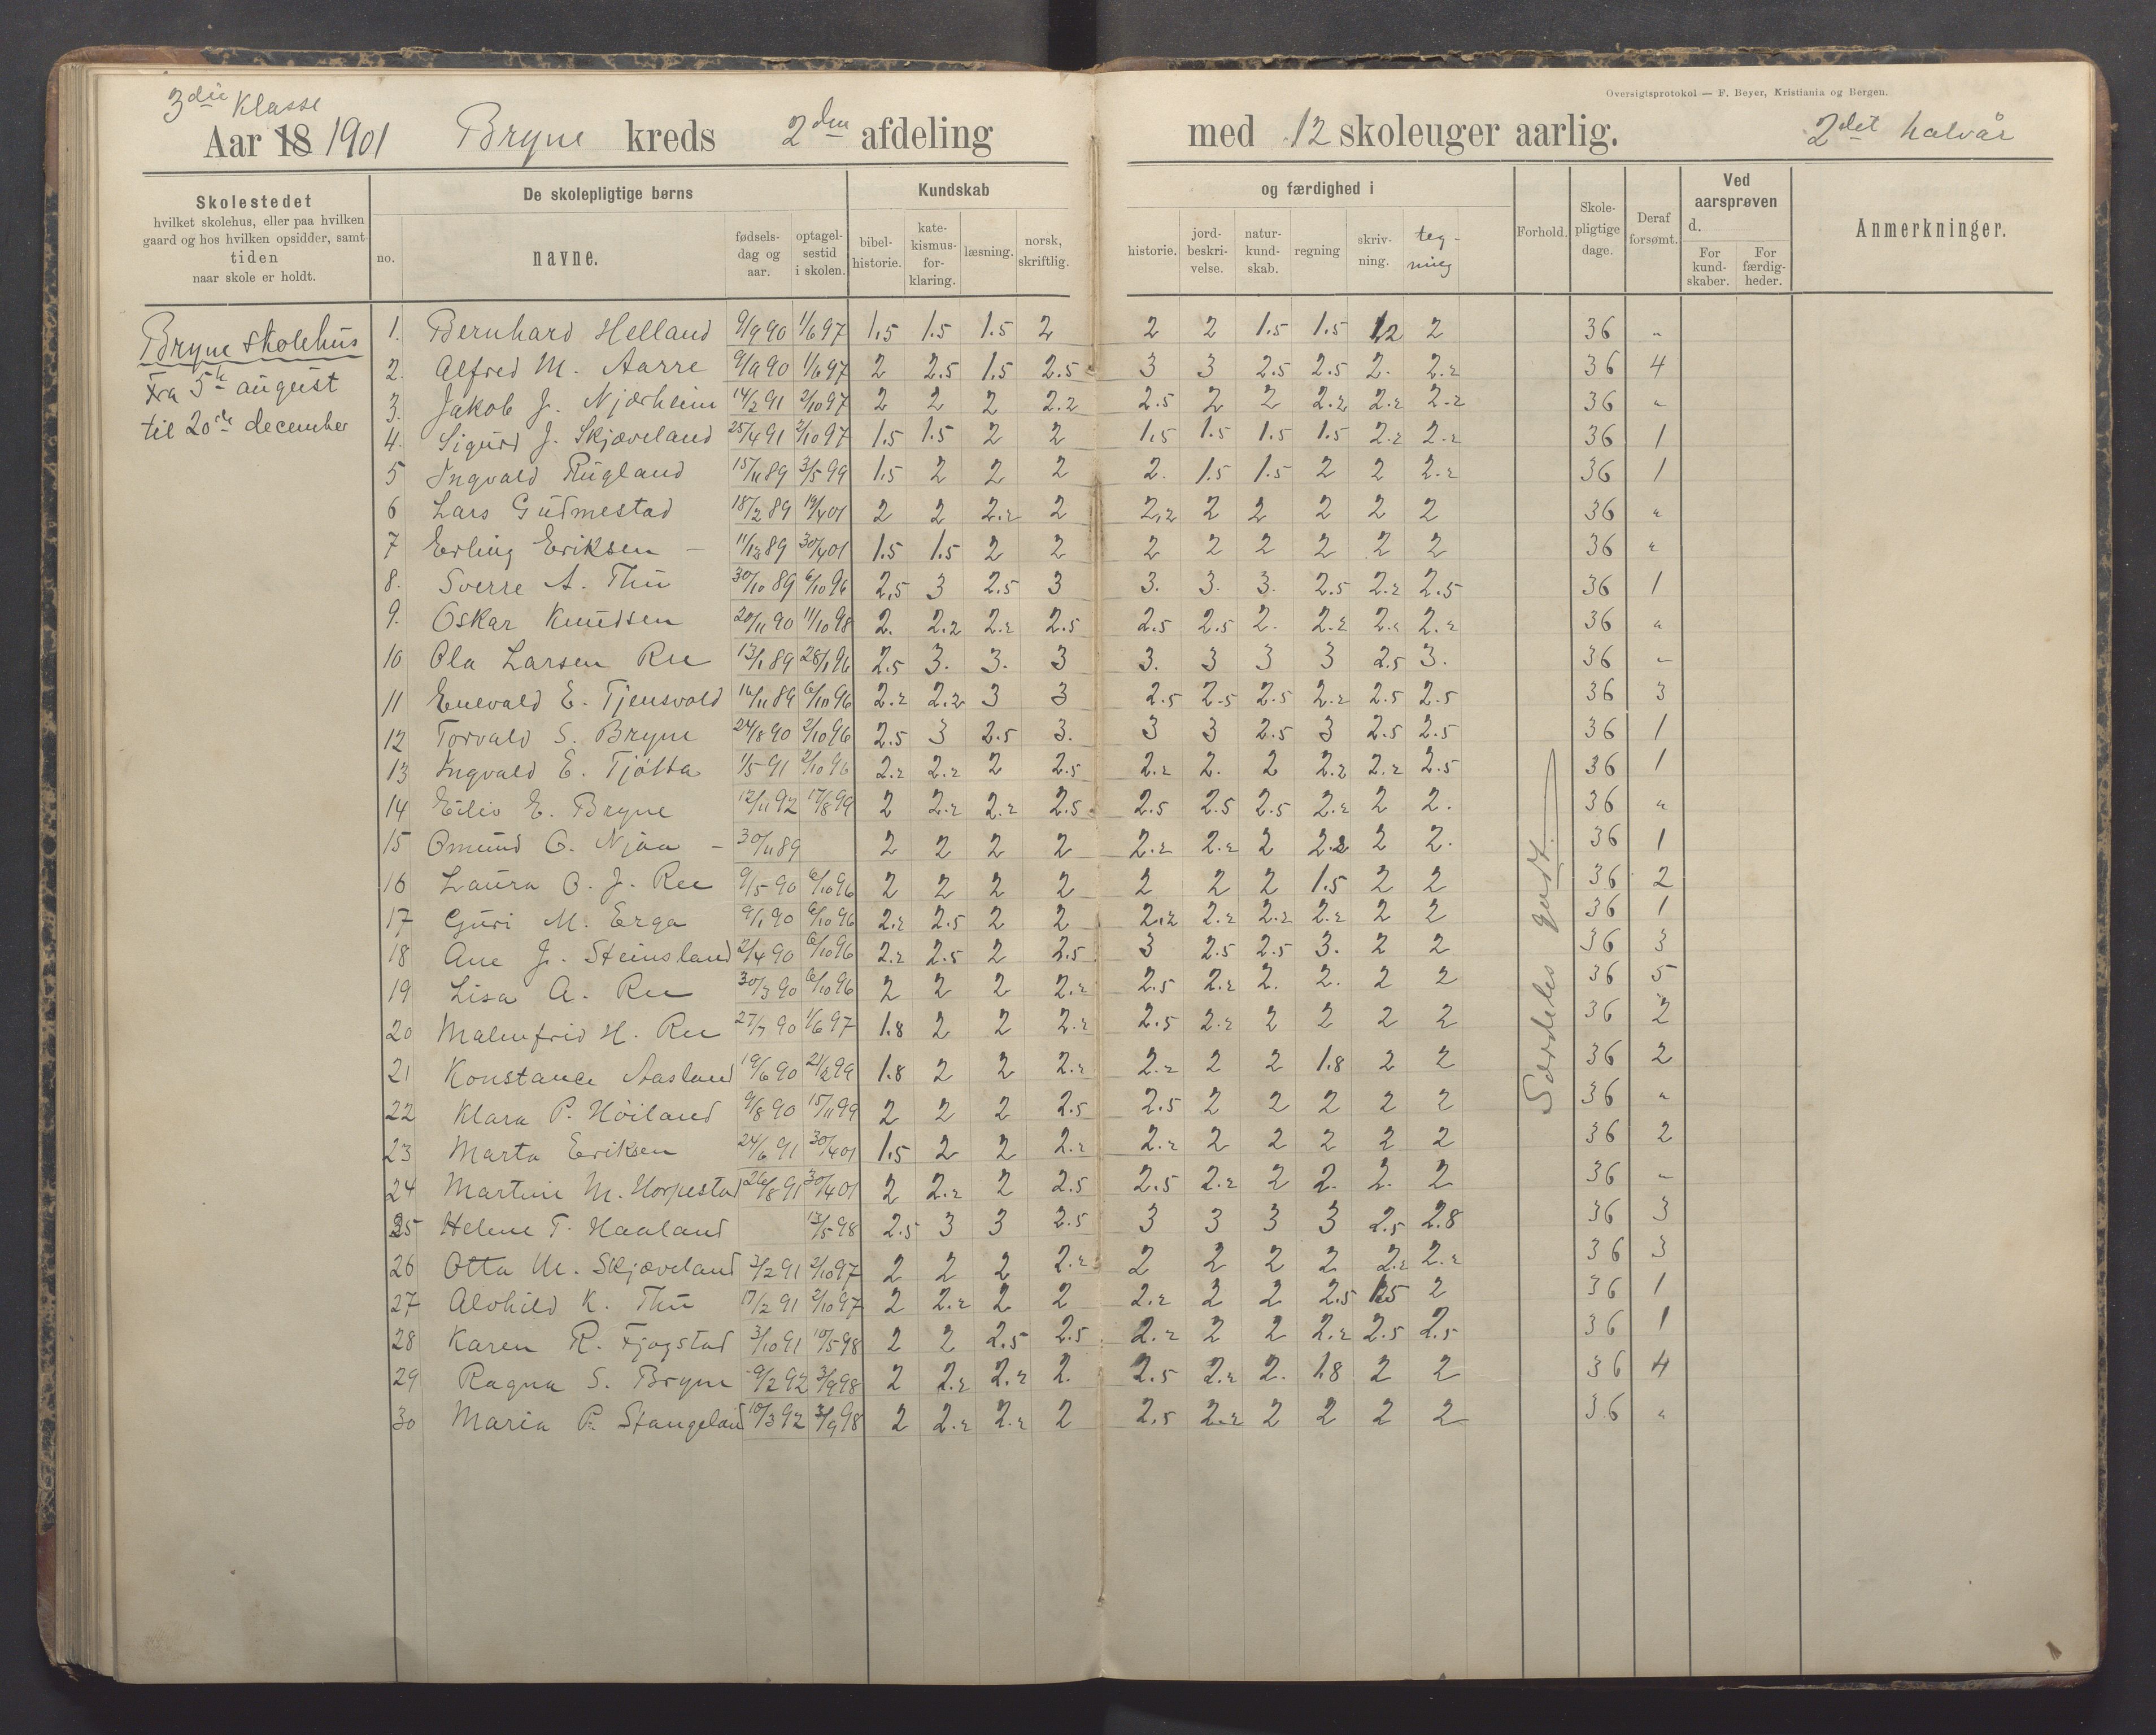 3die Klasse
Oversigtsprotokol — F. Beyer, Kristiania og Bergen.
Aar 18 1901 Bryne kreds 2den afdeling med 12 skoleuger aarlig. 2det halvår
Skolestedet
hvilket skolehus, eller paa hvilken
gaard og hos hvilken opsidder, samt
tiden
naar skole er holdt.
De skolepligtige børns
no. navne. fødselsdag og aar. optagelsestid i skolen.
Kundskab og færdighed i
bibelhistorie. katekismusforklaring. læsning. norsk, skriftlig. historie. jordbeskrivelse. naturkundskab. regning skrivning. tegning
Forhold. Skolepligtige dage. Deraf forsømt.
Ved aarsprøven d.
For kundskaber. For færdigheder.
Anmerkninger.
Bryne skolehus
Fra 5te august
til 20de december
1. Bernhard Helland 9/9 90 1/6 97 1.5 1.5 1.5 2 2 2 1.5 1.5 2 2 36 "
2. Alfred M. Aarre 9/9 90 1/6 97 2 2.5 1.5 2.5 3 3 2.5 2.5 2. 2.2 36 4
3. Jakob J. Njærheim 14/2 91 2/10 97 2 2 2 2.2 2.5 2 2 2.2 2.2 2.2 36 "
4. Sigurd J. Skjæveland 25/4 91 2/10 97 1.5 1.5 2 2 1.5 1.5 1.5 1.5 2.2 2.2 36 1
5 Ingvald Rugland 15/11 89 3/5 99 1.5 2 2 2 2. 1.5 1.5 2 2 2.2 36 1
6 Lars Gudmestad 18/2 89 19/4 01 2 2 2.2 2 2.2 2 2 2 2 2 36 "
7 Erling Eriksen – 11/12 89 30/4 01 1.5 1.5 2 2 2 2 2 2 2 2 36 "
8. Sverre A. Thu 30/10 89 6/10 96 2.5 3 2.5 3 3. 3. 3. 2.5 2.2 2.5 36 1
9. Oskar Knudsen 20/11 90 11/10 98 2. 2.2 2.2 2.5 2.5 2.5 2. 2.2 2.2 2.2 36 "
10 Ola Larsen Ree 13/1 89 28/1 96 2.5 3. 3. 3 3. 3 3 3 2.5 3. 36 "
11 Enevald E. Tjensvold 16/11 89 6/10 96 2.2 2.2 3 3 2.5 2.5 2.5 2.2 2.5 2.5 36 3
12 Torvald S. Bryne 24/8 90 2/10 96 2.5 3 2.5 3. 3 3 2.5 3 2.5 2.5 36 1
13 Ingvald E. Tjøtta 1/5 91 2/10 96 2.2 2.2 2 2.5 2.2 2. 2 2.2 2.2 2.5 36 1
14 Eiliv E. Bryne 12/11 92 17/8 99 2 2.2 2.2 2.5 2.5 2.5 2.5 2.2 2 2. 36 "
15 Omund O. Njaa – 30/11 89 2 2 2 2 2.2 2.2 2 2.2 2 2. 36 1
16 Laura O. J. Ree 9/5 90 6/10 96 2 2 2 2 2 2 2 1.5 2 2 36 2
17 Guri M. Erga 9/1 90 6/10 96 2.2 2.5 2 2 2.2 2.2 2.2 2.2 2 2 36 1
18 Ane J. Steinsland 2/4 90 6/10 96 2.2 2.5 2 2.5 3 2.5 2.5 3. 2 2 36 3
19 Lisa A. Ree 30/3 90 6/10 96 2 2 2 2.2 2.5 2.2 2. 2. 2 2 36 5
20 Malmfrid H. Ree 27/7 90 1/6 97 1.8 2 2 2.2 2.5 2.2 2 2 2 2 36 2
21 Konstance Aasland 19/6 90 21/2 99 1.8 2 2 2.2 2.2 2 2 1.8 2 2 36 2
22 Klara P. Høiland 9/8 90 15/11 99 2 2 2 2.5 2.5 2 2 2 2 2 36 "
23 Marta Eriksen 24/6 91 30/4 01 1.5 2 2 2.2 2.2 2 2 2 2 2 36 2
24 Martine M. Horpestad 26/8 91 30/4 01 2 2.2 2 2.5 2.5 2.2 2 2. 2. 2 36 "
25 Helene T. Haaland 13/5 98 2.5 3 3 2.5 3 3 3 3 2.5 2.8 36 3
26 Otta M. Skjæveland 3/2 91 2/10 97 2 2 2 2.2 2 2 2 2 2.2 2.2 36 3
27 Alvhild K. Thu 17/2 91 2/10 97 2 2.2 2 2 2.2 2 2 2.5 2 36 1
28 Karen R. Fjogstad 3/10 91 10/5 98 2 2 2.5 2.5 2.2 2 2 2.2 2.5 2.5 36 1
29 Ragna S. Bryne 9/2 92 3/9 98 2 2.2 2.2 2. 2.5 2.2 2. 1.8 2 2 36 4
30 Maria P. Stangeland 10/3 92 3/9 98 2 2.2 2.2 2 2.5 2.2 2 2 2 2 36 "
Særdeles godt.